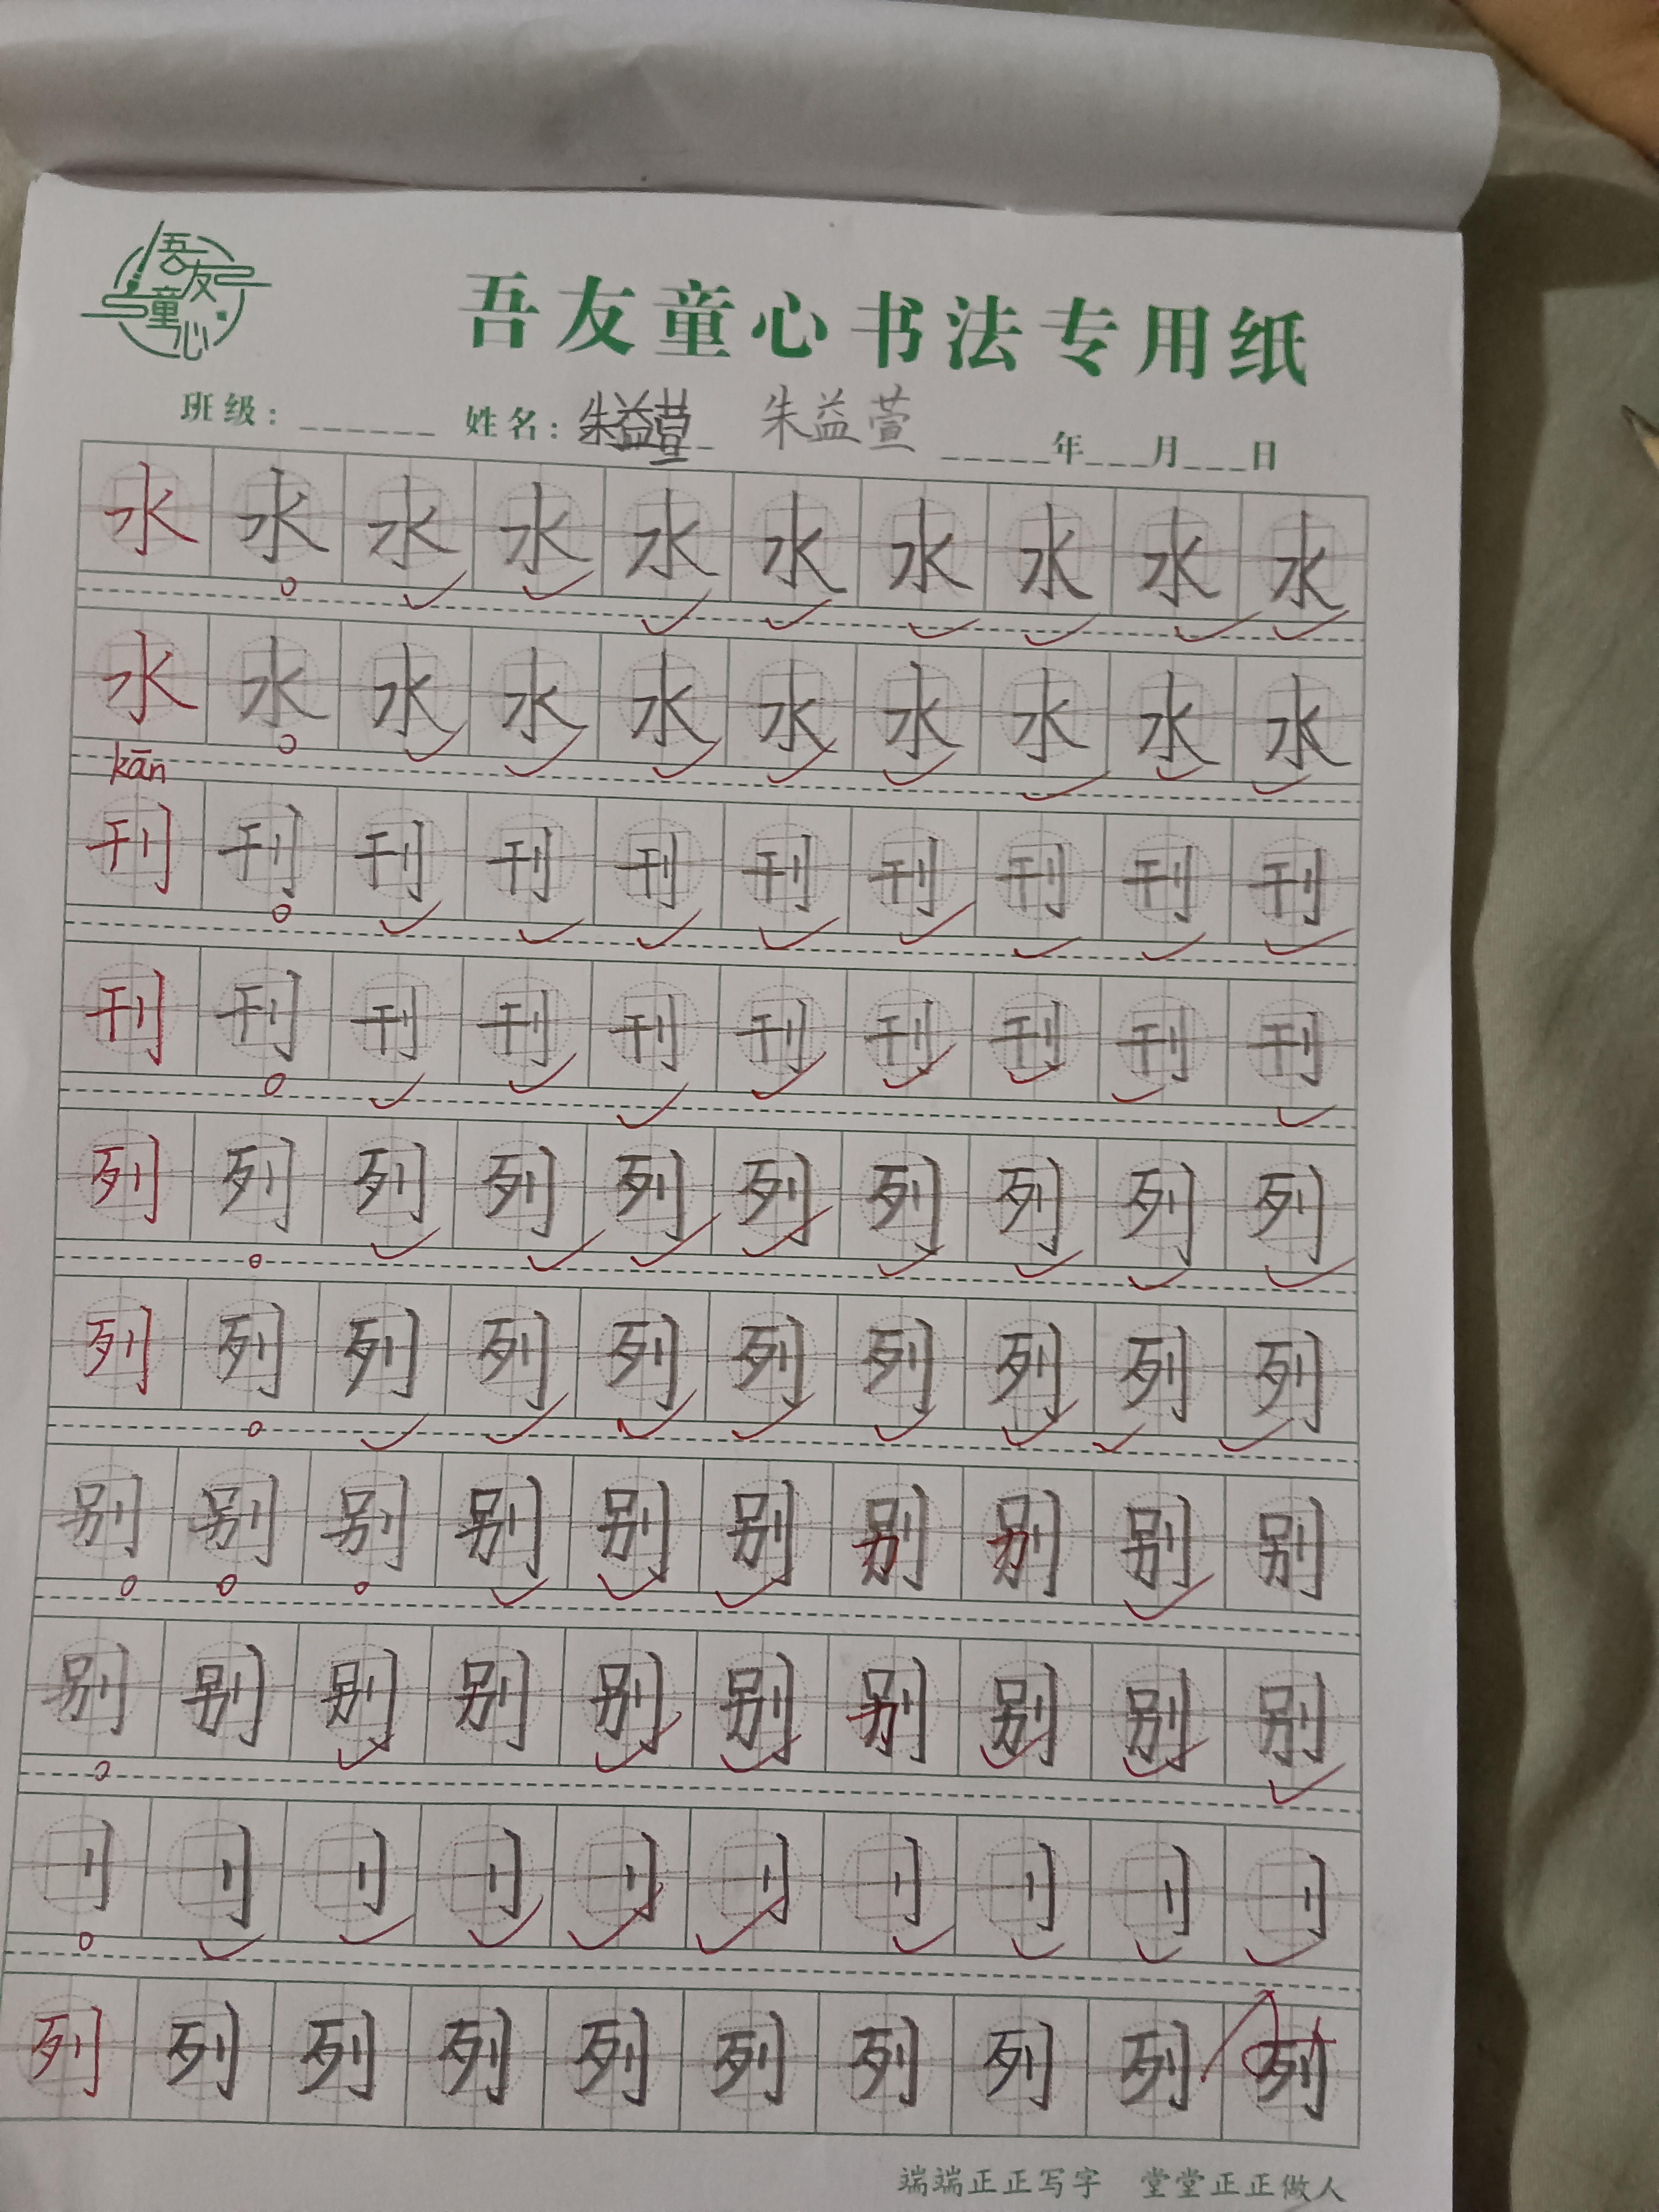 吾友童心
吾友童心书法专用纸
班级：______ 姓名：朱益萱 朱益萱 _____年___月___日
水水水水水水水水水水
水水水水水水水水水水
kān
刊刊刊刊刊刊刊刊刊刊
刊刊刊刊刊刊刊刊刊刊
列列列列列列列列列列
列列列列列列列列列列
别别别别别别别别别别
别别别别别别别别别别
刂刂刂刂刂刂刂刂刂刂
列列列列列列列列列列
端端正正写字 堂堂正正做人